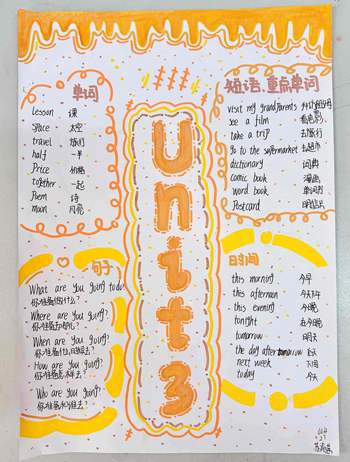 单词
Lesson 课
Space 太空
travel 旅行
half 一半
Price 价格
together 一起
Poem 诗
moon 月亮
短语、重点单词
visit my grandparents
see a film 看电影
take a trip 去旅行
go to the supermarket 去超市
dictionary 词典
comic book 漫画
word book 单词书
Postcard 明信片
Unit 3
句子
What are you going to do?
你准备做什么?
Where are you going?
When are you going?
How are you going?
Who are you going?
时间
this morning 今早
this afternoon 今天下午
this evening 今晚
tonight 在今晚
tomorrow 明天
the day after tomorrow 后天
next week 下周
today 今天